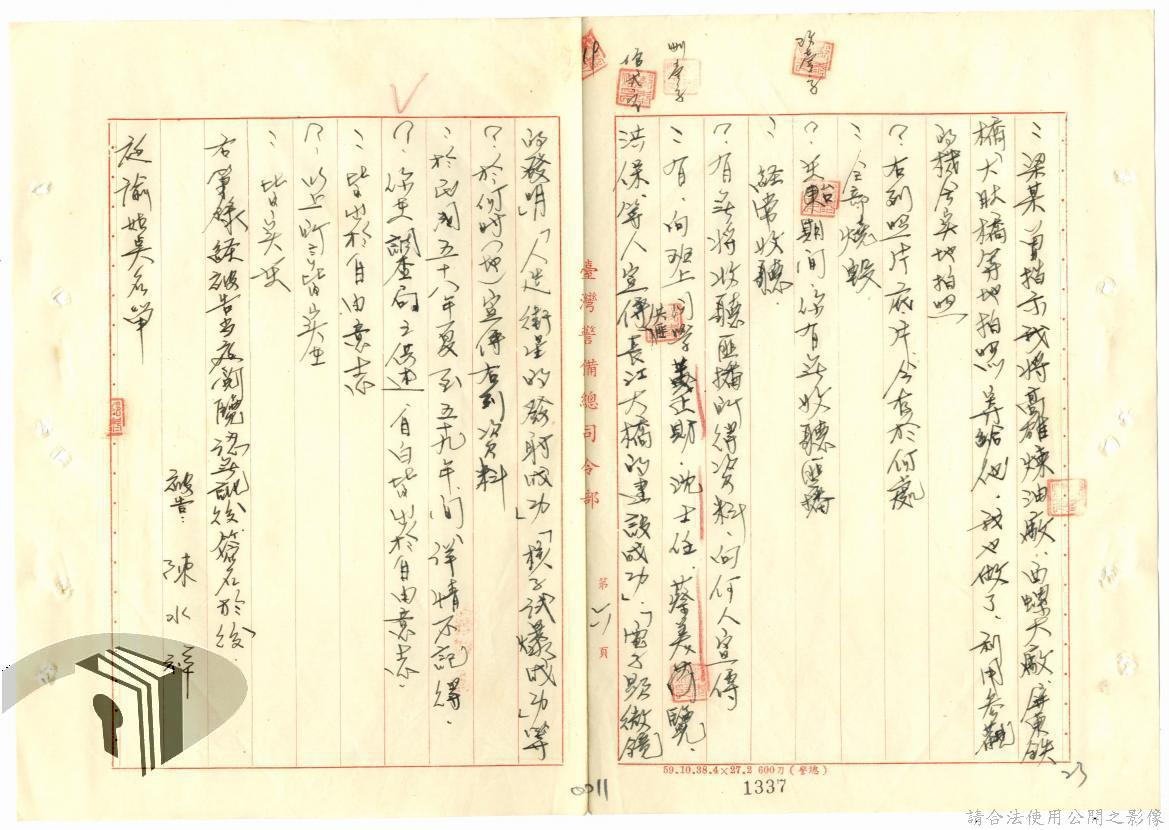 改壹字
刪壹字
∶梁某曾指示我將高雄煉油廠、西螺大廠、屏東鉄
橋、大肚橋等地拍照、弄給他、我也做了、利用參觀
的機會實地拍照
?右列照片底片今存於何處
∶全部燒毀
?光東期間、你有無收聽匪播
台
∶經常收聽
?有無將收聽匪播所得資料、向何人宣傳
∶有、向班上同學、沈士任、蔡美、
洪保、等人宣傳「長江大橋的建設成功」、「電子顯微鏡」
59.10.38.4×27.2 600刀(警總)
1337
23
臺灣警備總司令部
第 頁
的發明」「人造衛星的發射成功」「核子試爆成功」等
?於何時(地)宣傳右列資料
∶於民國五十八年夏至五十九年間、詳情不記得.
?你在調查局之供述、自白皆出於自由意志.
∶皆出於自由意志
?以上所言皆實在
∶皆實在
右筆錄經被告當庭閱覽認無訛後簽名於後.
被告∶陳水祥
0011
請合法使用公開之影像